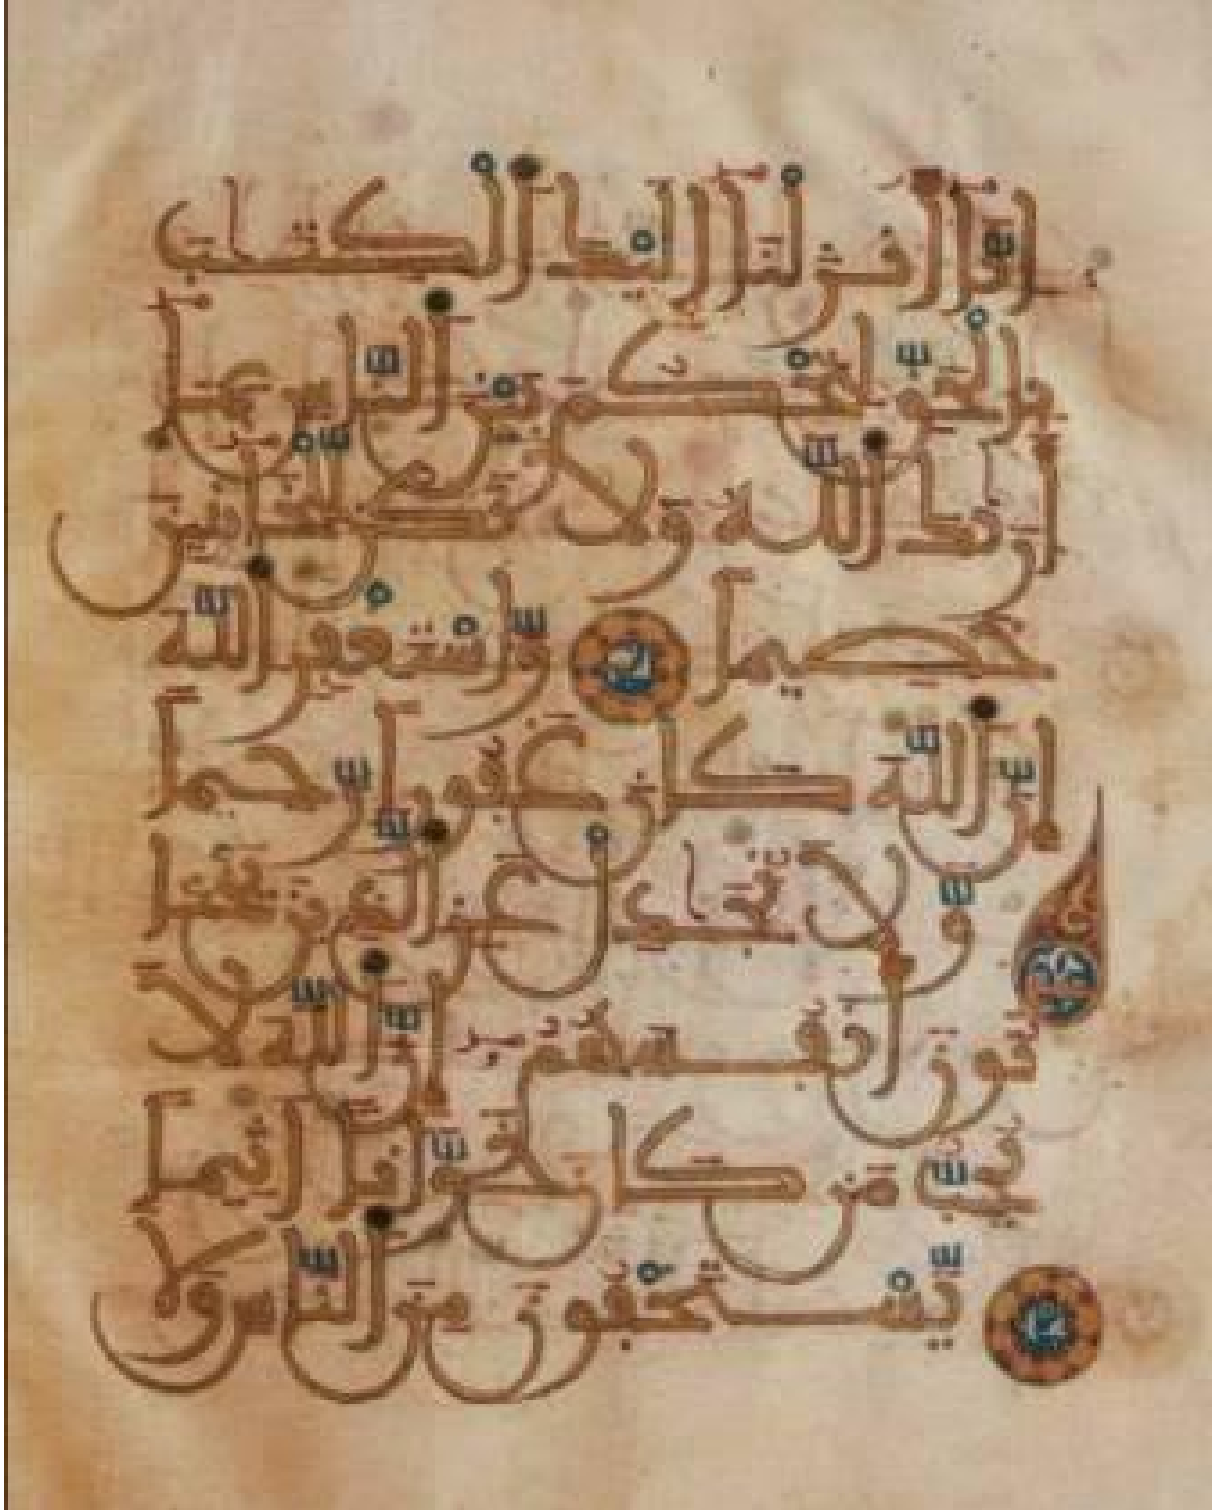 إنا أنزلنا إليك الكتٰب
بالحق لتحكم بين الناس بما
أريك الله ولا تكن للخائنين
خصيما واستغفر الله
إن الله كان غفورا رحيما
ولا تجٰدل عن الذين يختا
نون أنفسهم إن الله لا
يحب من كان خوانا أثيما
يستخفون من الناس ولا